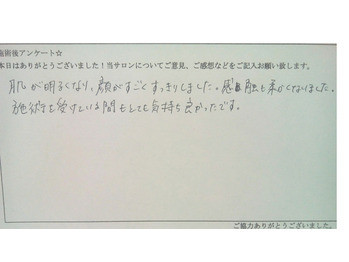 施術後アンケート☆
本日はありがとうございました！当サロンについてご意見、ご感想などをご記入お願い致します。
肌が明るくなり、顔がすごくすっきりしました。感触も柔かくなりました。
施術を受けている間もとても気持ち良かったです。
ご協力ありがとうございました。